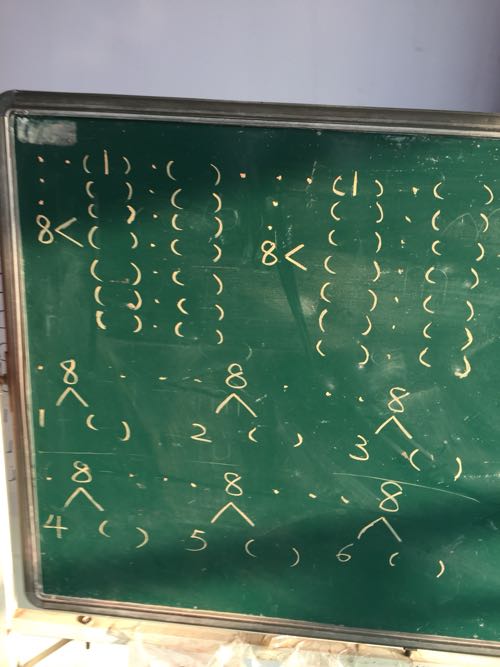 · · (1) · ( ) · · · (1) · ( )
· ( ) · ( ) ( ) · ( )
· ( ) · ( ) · ( ) · ( )
8< ( ) · ( ) 8< ( ) · ( )
( ) · ( ) ( ) · ( )
( ) · ( ) ( ) · ( )
( ) · ( ) ( ) · ( )
· 8 · · · 8 · · · 8
1 ( ) 2 ( ) 3 ( )
· 8 · · · 8 · · · 8
4 ( ) 5 ( ) 6 ( )